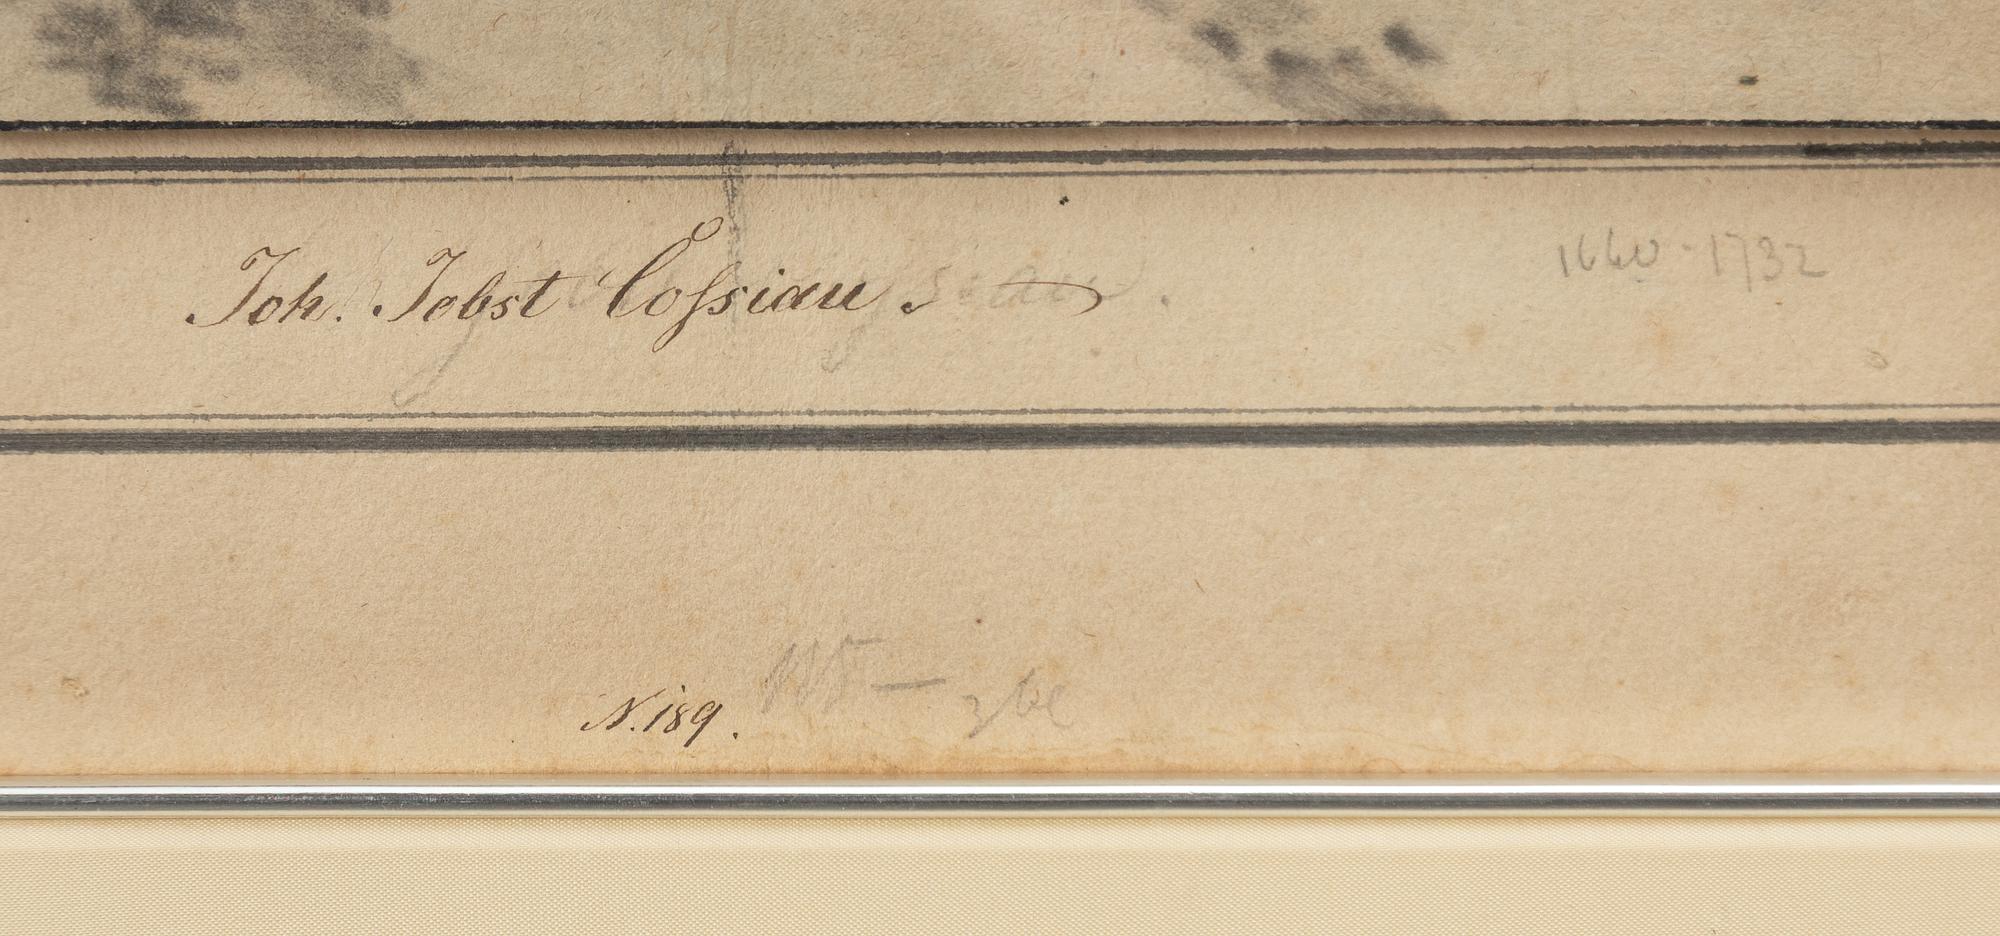 Joh. Jobst Cossiau.
1660-1732
N. 189.